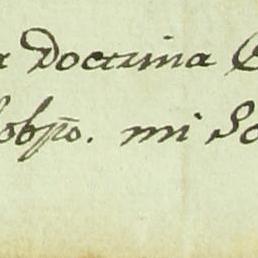 a Doctrina
obpo. mi So